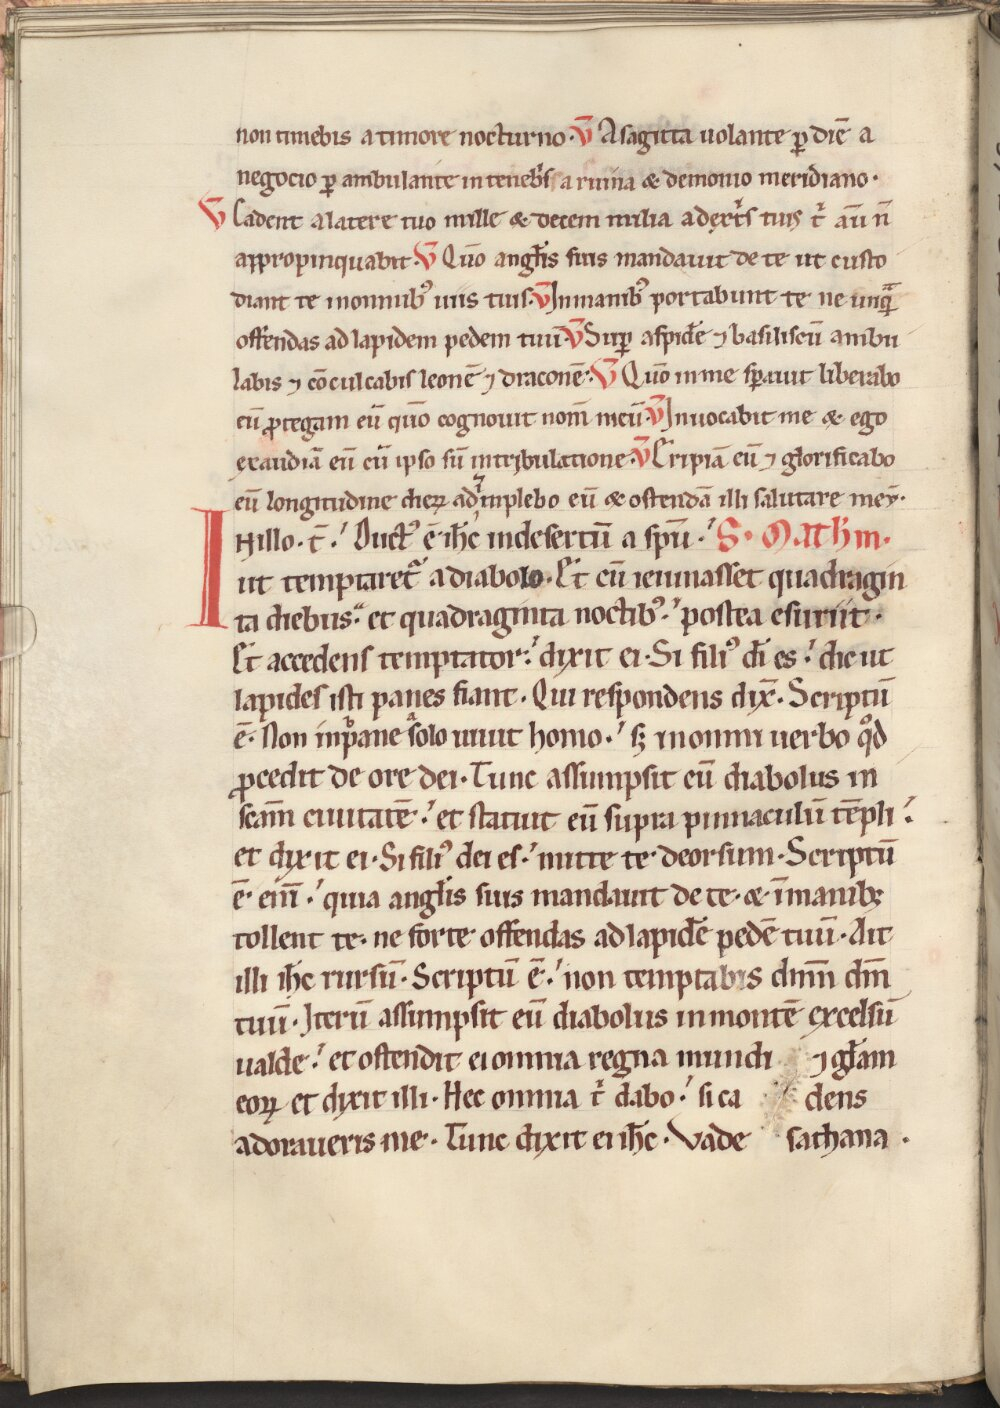 non timebis a timore nocturno· V̄ A sagitta uolante p̲ diē a
negocio p̲ ambulante in teneb͛is a ruina & demonio meridiano·
V̄ Cadent a latere tuo mille & decem milia a dext͛s tuis t͛ aū n̄
appropinquabit· V̄ Qūo angl̄is suis mandauit de te ut custo
diant te in omnibꝰ uiis tuis· V̄ In manibꝰ portabunt te ne unqᷓ
offendas ad lapidem pedem tuū· V̄ Sup̲ aspidē ⁊ basiliscū ambu
labis ⁊ cōculcabis leonē ⁊ draconē· V̄ Qūo in me sp̲auit liberabo
eū ꝓtegam eū qūo cognouit nom̄ meū· V̄ Inuocabit me & ego
exaudiā eū cū ipso sū in tribulatione· V̄ Eripiā eū ⁊ glorificabo
eū longitudine dieꝝ adimplebo eū & ostendā illi salutare meū·
IN illo· t̄· Ductꝰ ē ih̄c in desertū a sp̄u· S· Math̄m·
ut temptaret᷑ a diabolo· Et cū ieiunasset quadragin
ta diebus· et quadraginta noctibꝰ· postea esuriit·
Et accedens temptator· dixit ei· Si filiꝰ d̄i es· dic ut
lapides isti panes fiant· Qui respondens dix̄· Scriptū
ē· Non in pane solo uiuit homo· sꝫ in omni uerbo qͦd
ꝓcedit de ore dei· Tunc assumpsit eū diabolus in
sc̄am ciuitatē· et statuit eū supra pinnaculū tēpli·
et dixit ei· Si filiꝰ dei es· mitte te deorsum· Scriptū
ē· enī· quia angl̄is suis mandauit de te· & ī manibꝫ
tollent te· ne forte offendas ad lapidē pedē tuū· Ait
illi ih̄c rursū· Scriptū ē· non temptabis dn̄m dm̄
tuū· Iterū assumpsit eū diabolus in montē excelsū
ualde· et ostendit ei omnia regna mundi ⁊ gl̄am
eoꝝ et dixit illi· Hec omnia t͛ dabo· si ca dens
adoraueris me· Tunc dixit ei ih̄c· Vade sathana·